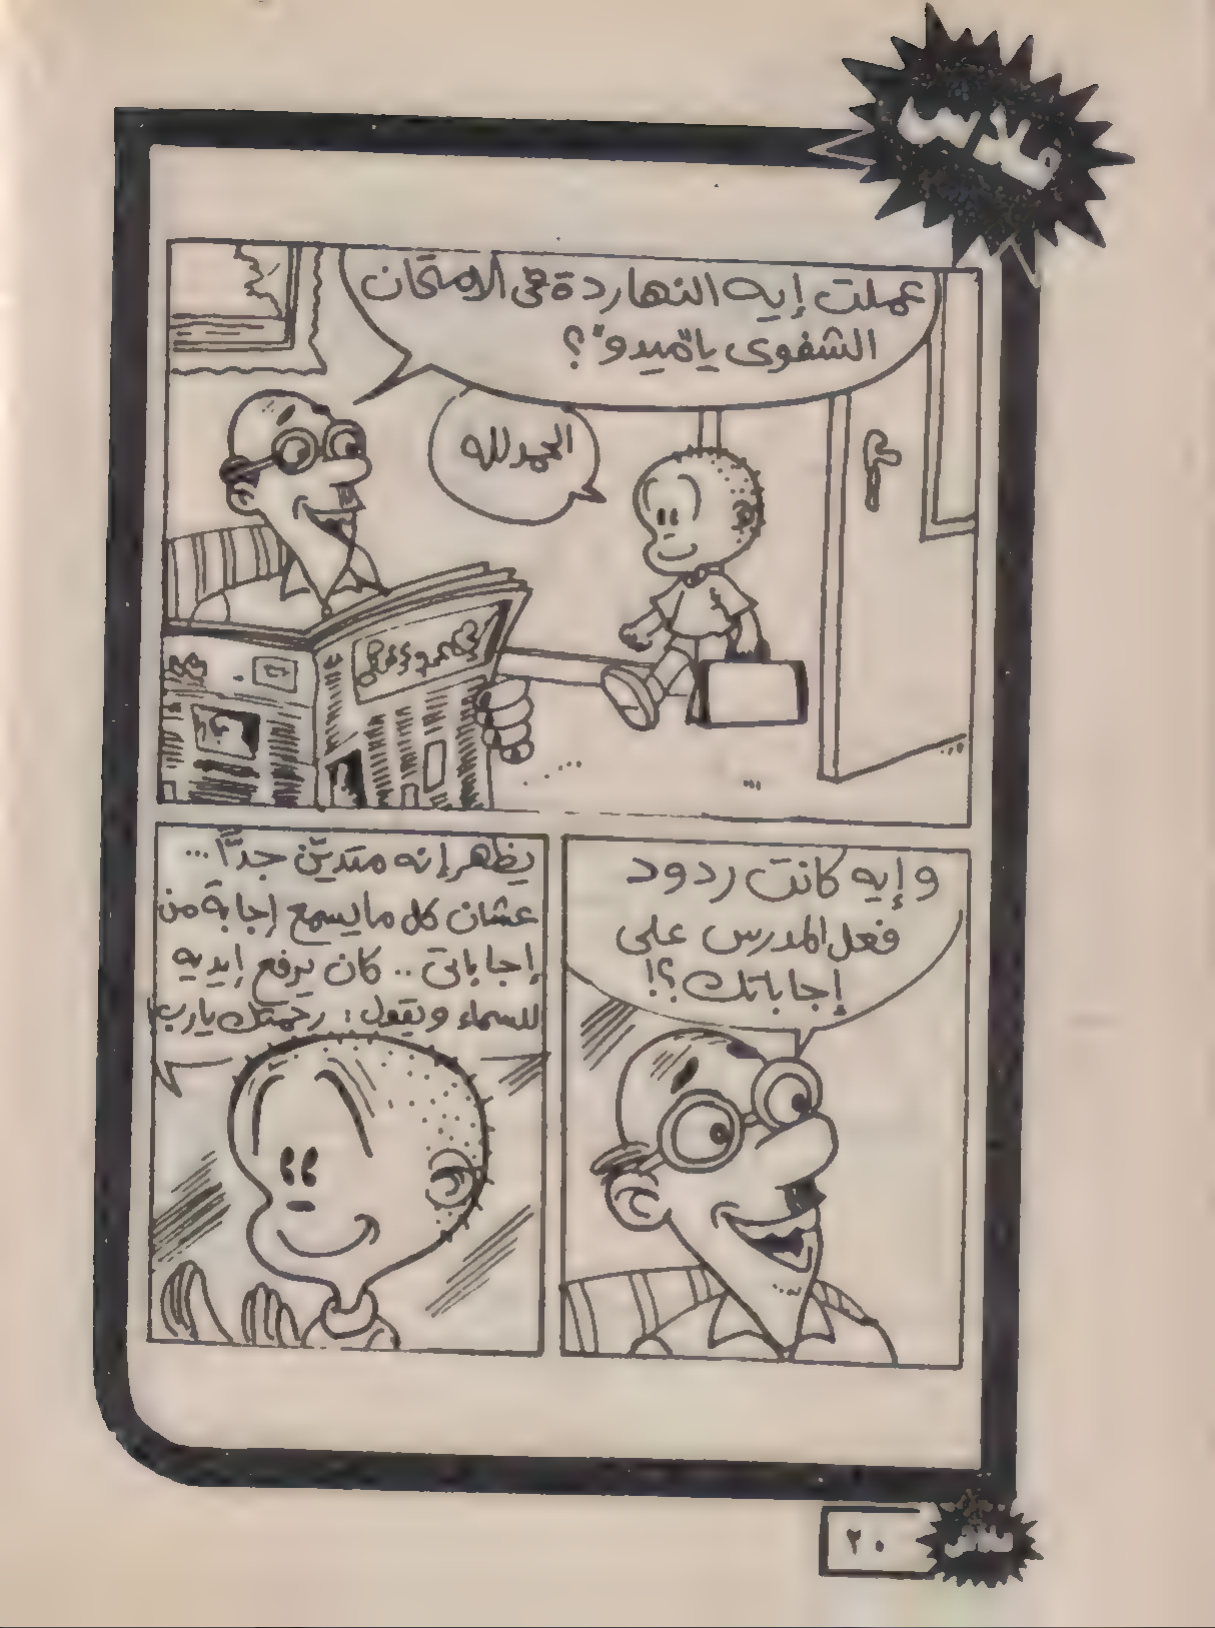 فلاش
عملت إيه النهاردة فى الامتحان
الشفوى يا "ميدو"؟
الحمد لله
و إيه كانت ردود
فعل المدرس على
إجاباتك؟!
يظهر إنه متديّن جدًّا...
عشان كل ما يسمع إجابة من
إجاباتى.. كان يرفع إيديه
للسماء ويقول: رحمتك يارب
٢٠
فلاش